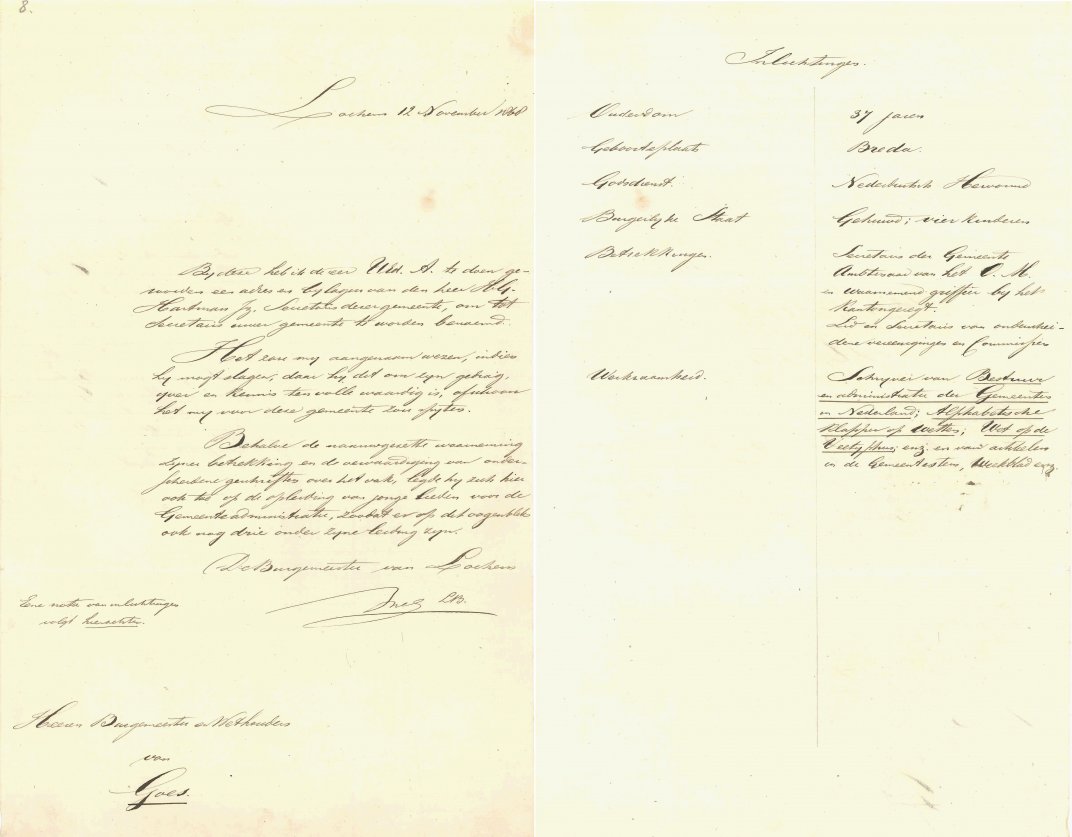 8.
Lochem 12 November 1868
Bij deze heb ik de eer UEd. A. te doen ge-
worden een adres en bijlagen van den heer A. G.
Hartman Jz. Secretaris dezer gemeente, om tot
Secretaris uwer gemeente te worden benoemd.
Het zou mij aangenaam wezen, indien
hij mogt slagen, daar hij dit om zijn gedrag,
ijver en kennis ten volle waardig is, ofschoon
het mij voor deze gemeente zou spijten.
Behalve de naauwgezette waarneming
zijner betrekking en de vervaardiging van onder-
scheidene geschriften over het vak, legde hij zich hier
ook toe op de opleiding van jonge lieden voor de
Gemeente administratie, zoodat er op dit oogenblik
ook nog drie onder zijne leiding zijn.
De Burgemeester van Lochem
Eene nota van inlichtingen
volgt hierachter.
Heeren Burgemeester en Wethouders
van
Goes.
Inlichtingen.
Ouderdom 37 jaren
Geboorteplaats Breda.
Godsdienst. Nederduitsch Hervormd
Burgerlijke Staat Gehuwd; vier kinderen
Betrekkingen. Secretaris der Gemeente
Ambtenaar van het O. M.
en waarnemend griffier bij het
Kantongeregt.
Lid en Secretaris van onderschei-
dene vereenigingen en Commissien
Werkzaamheid. Schrijver van Bestuur
en administratie der Gemeenten
in Nederland; Alphabetische
Klapper op Wetten; Wet op de
Veetyphus; enz. en van artikelen
in de Gemeentestem, Weekblad enz.